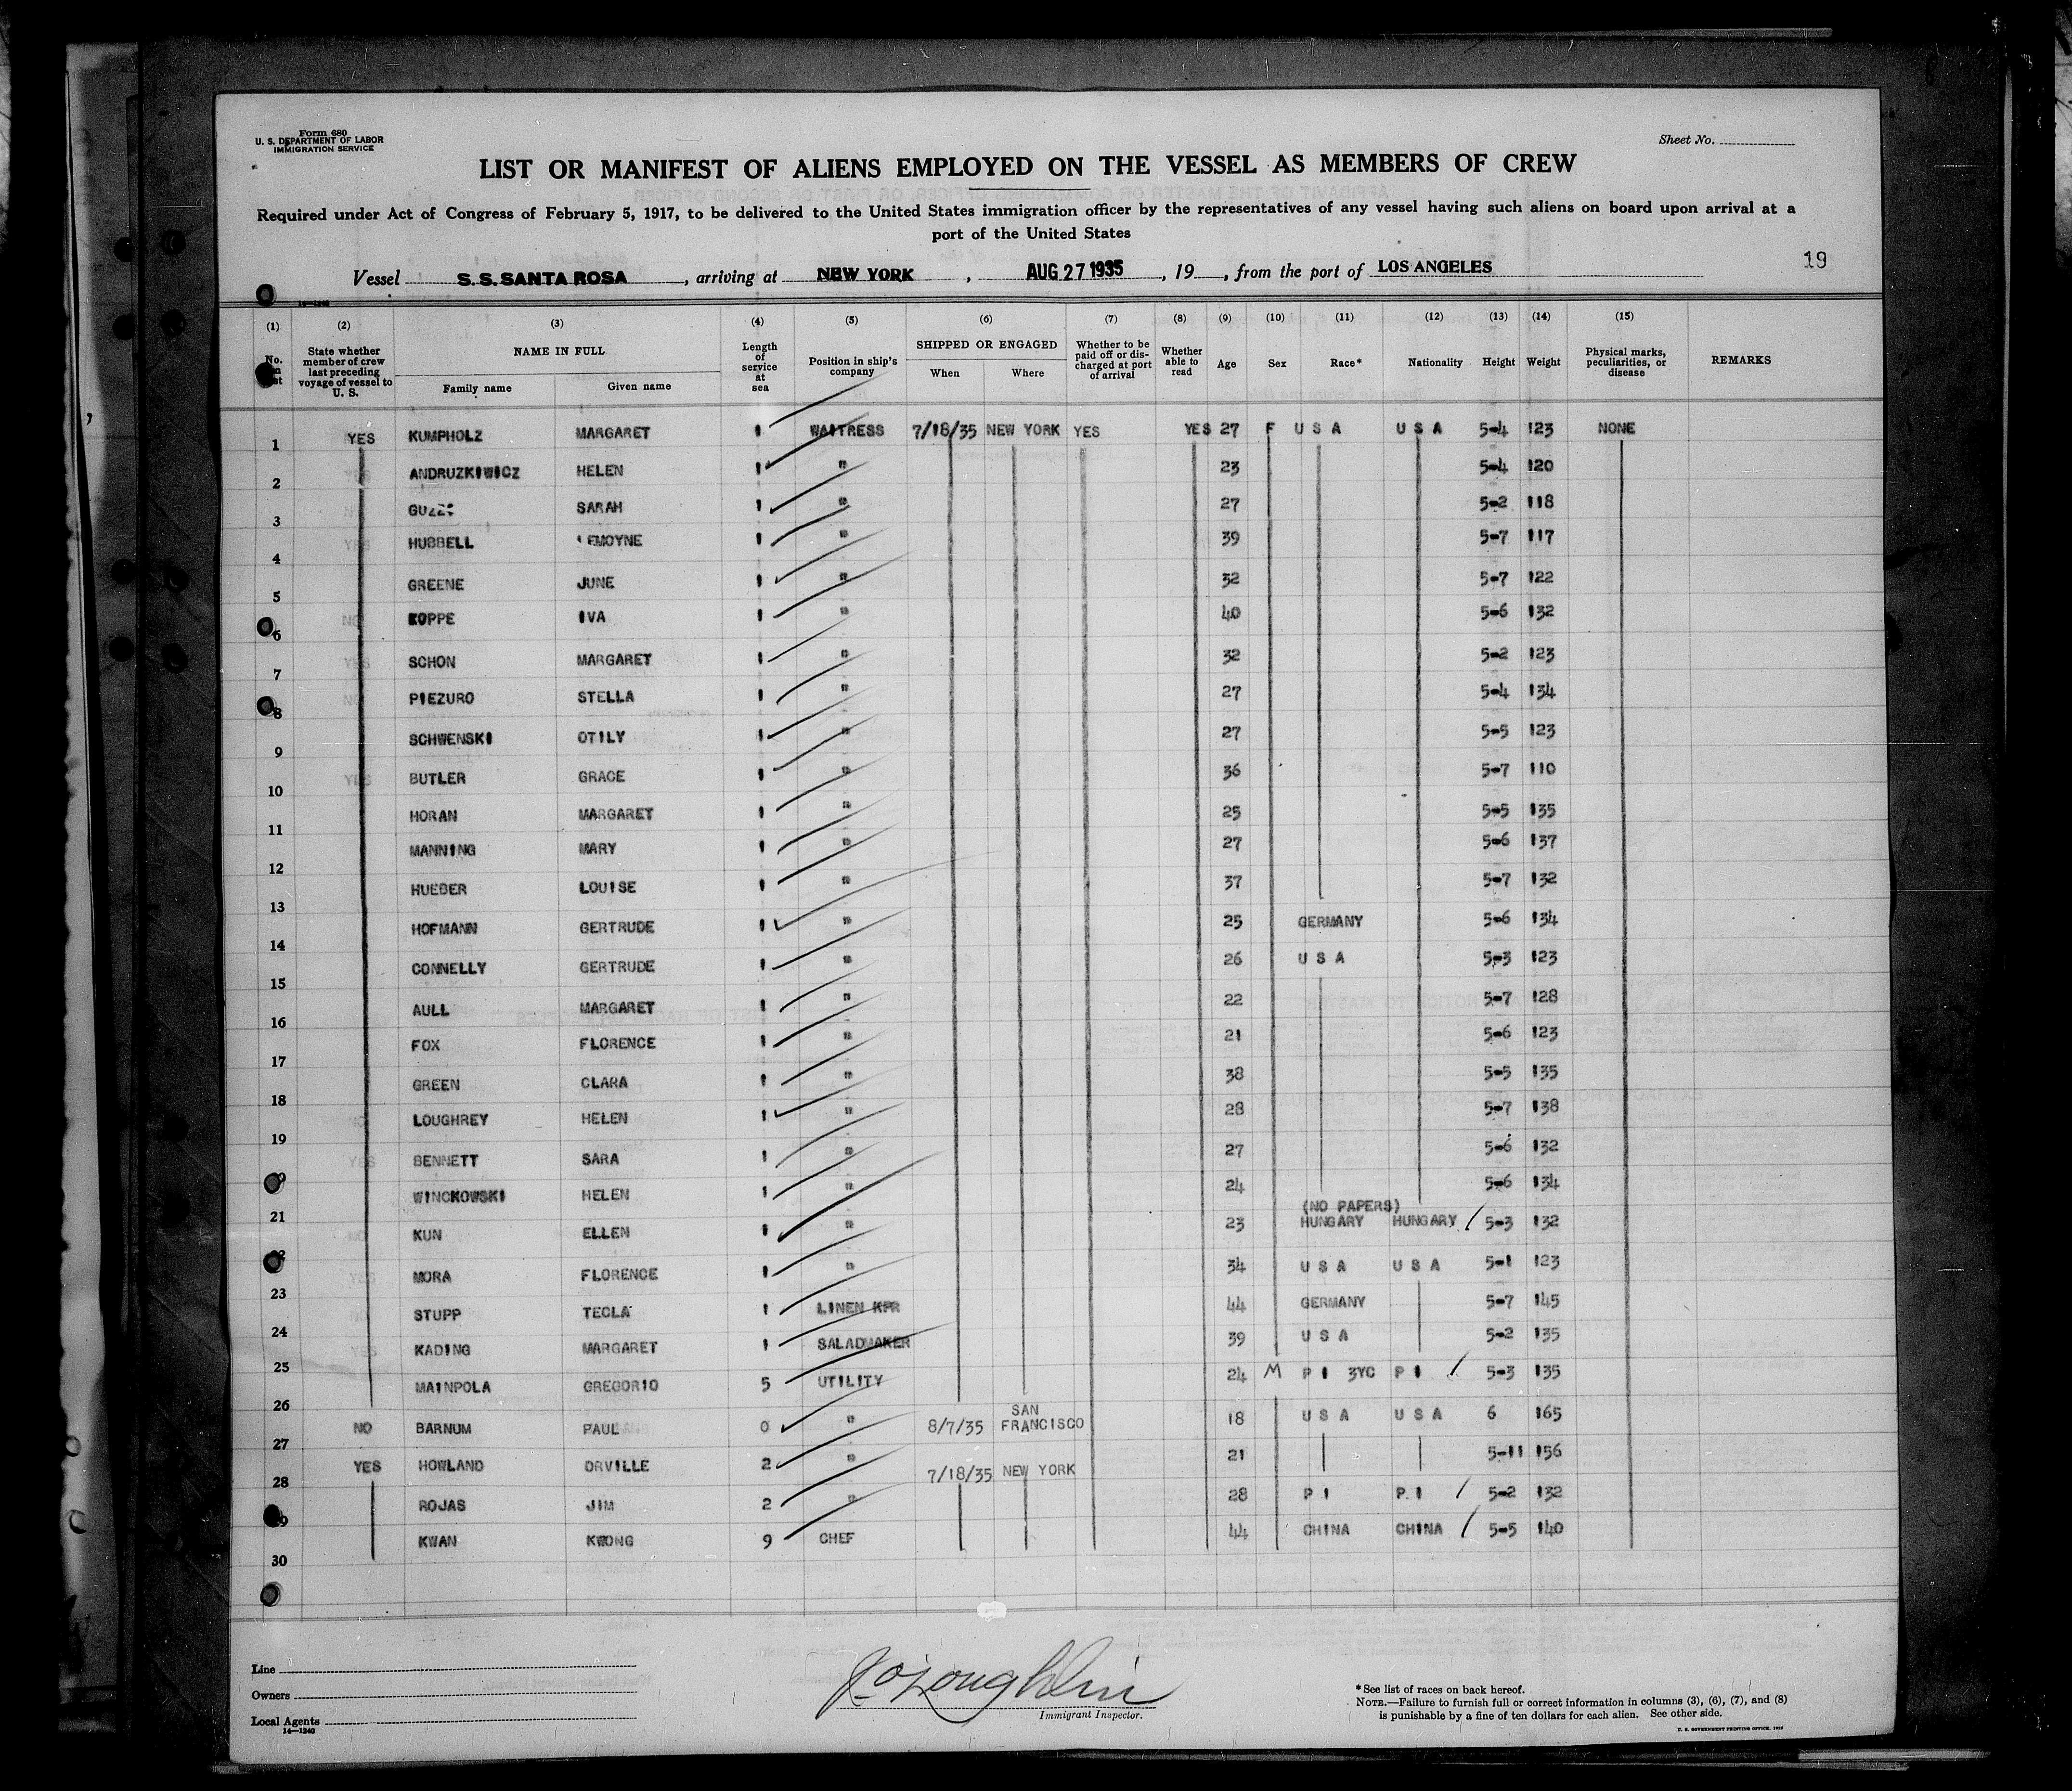 Form 680
U. S. DEPARTMENT OF LABOR
IMMIGRATION SERVICE
Sheet No.
LIST OR MANIFEST OF ALIENS EMPLOYED ON THE VESSEL AS MEMBERS OF CREW
Required under Act of Congress of February 5, 1917, to be delivered to the United States immigration officer by the representatives of any vessel having such aliens on board upon arrival at a
port of the United States
Vessel S. S. SANTA ROSA, arriving at NEW YORK, AUG 27 1935, 19, from the port of LOS ANGELES
19
(1) (2) (3) (4) (5) (6) (7) (8) (9) (10) (11) (12) (13) (14) (15)
No. on list
State whether member of crew last preceding voyage of vessel to U. S.
NAME IN FULL
Family name Given name
Length of service at sea
Position in ship's company
SHIPPED OR ENGAGED
When Where
Whether to be paid off or discharged at port of arrival
Whether able to read
Age Sex Race* Nationality Height Weight
Physical marks, peculiarities, or disease
REMARKS
1 YES KUMPHOLZ MARGARET 1 WAITRESS 7/18/35 NEW YORK YES YES 27 F U S A U S A 5-4 123 NONE
2 ANDRUZKIWICZ HELEN 1 " 23 5-4 120
3 SARAH 1 " 27 5-2 118
4 HUBBELL LEMOYNE 1 " 39 5-7 117
5 GREENE JUNE 1 " 32 5-7 122
6 KOPPE IVA 1 " 40 5-6 132
7 SCHON MARGARET 1 " 32 5-2 123
8 PIEZURO STELLA 1 " 27 5-4 134
9 SCHWENSKI OTILY 1 " 27 5-5 123
10 BUTLER GRACE 1 " 36 5-7 110
11 HORAN MARGARET 1 " 25 5-5 135
12 MANNING MARY 1 " 27 5-6 137
13 HUEBER LOUISE 1 " 37 5-7 132
14 HOFMANN GERTRUDE 1 " 25 GERMANY 5-6 134
15 CONNELLY GERTRUDE 1 " 26 U S A 5-3 123
16 AULL MARGARET 1 " 22 5-7 128
17 FOX FLORENCE 1 " 21 5-6 123
18 GREEN CLARA 1 " 38 5-5 135
19 LOUGHREY HELEN 1 " 28 5-7 138
BENNETT SARA 1 " 27 5-6 132
21 WINCKOWSKI HELEN 1 " 24 5-6 134
KUN ELLEN 1 " 23 (NO PAPERS) HUNGARY HUNGARY 5-3 132
23 MORA FLORENCE 1 " 34 U S A U S A 5-1 123
24 STUPP TECLA 1 LINEN KPR 44 GERMANY 5-7 145
25 KADING MARGARET 1 SALADMAKER 39 U S A 5-2 135
26 MAINPOLA GREGORIO 5 UTILITY 24 M P I 3YC P I 5-3 135
27 NO BARNUM PAUL 0 " 8/7/35 SAN FRANCISCO 18 U S A U S A 6 165
28 YES HOWLAND ORVILLE 2 " 7/18/35 NEW YORK 21 5-11 156
ROJAS JIM 2 " 28 P I P. I 5-2 132
30 KWAN KWONG 9 CHEF 44 CHINA CHINA 5-5 140
Line
Owners
Local Agents
14—1240
Immigrant Inspector.
*See list of races on back hereof.
NOTE.—Failure to furnish full or correct information in columns (3), (6), (7), and (8)
is punishable by a fine of ten dollars for each alien. See other side.